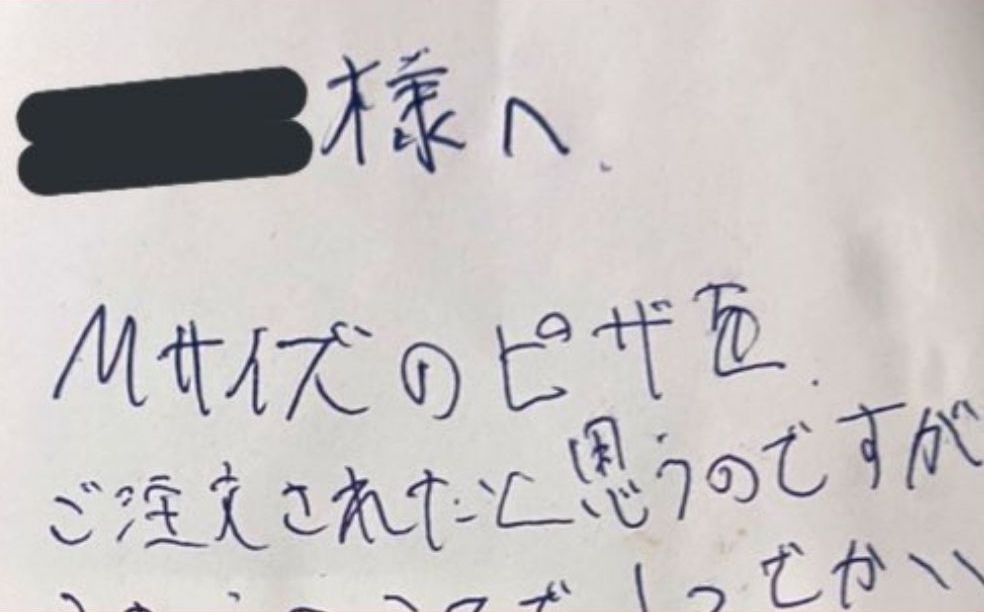 様へ.
Mサイズのピザを.
ご注文されたと思うのですが
でかい